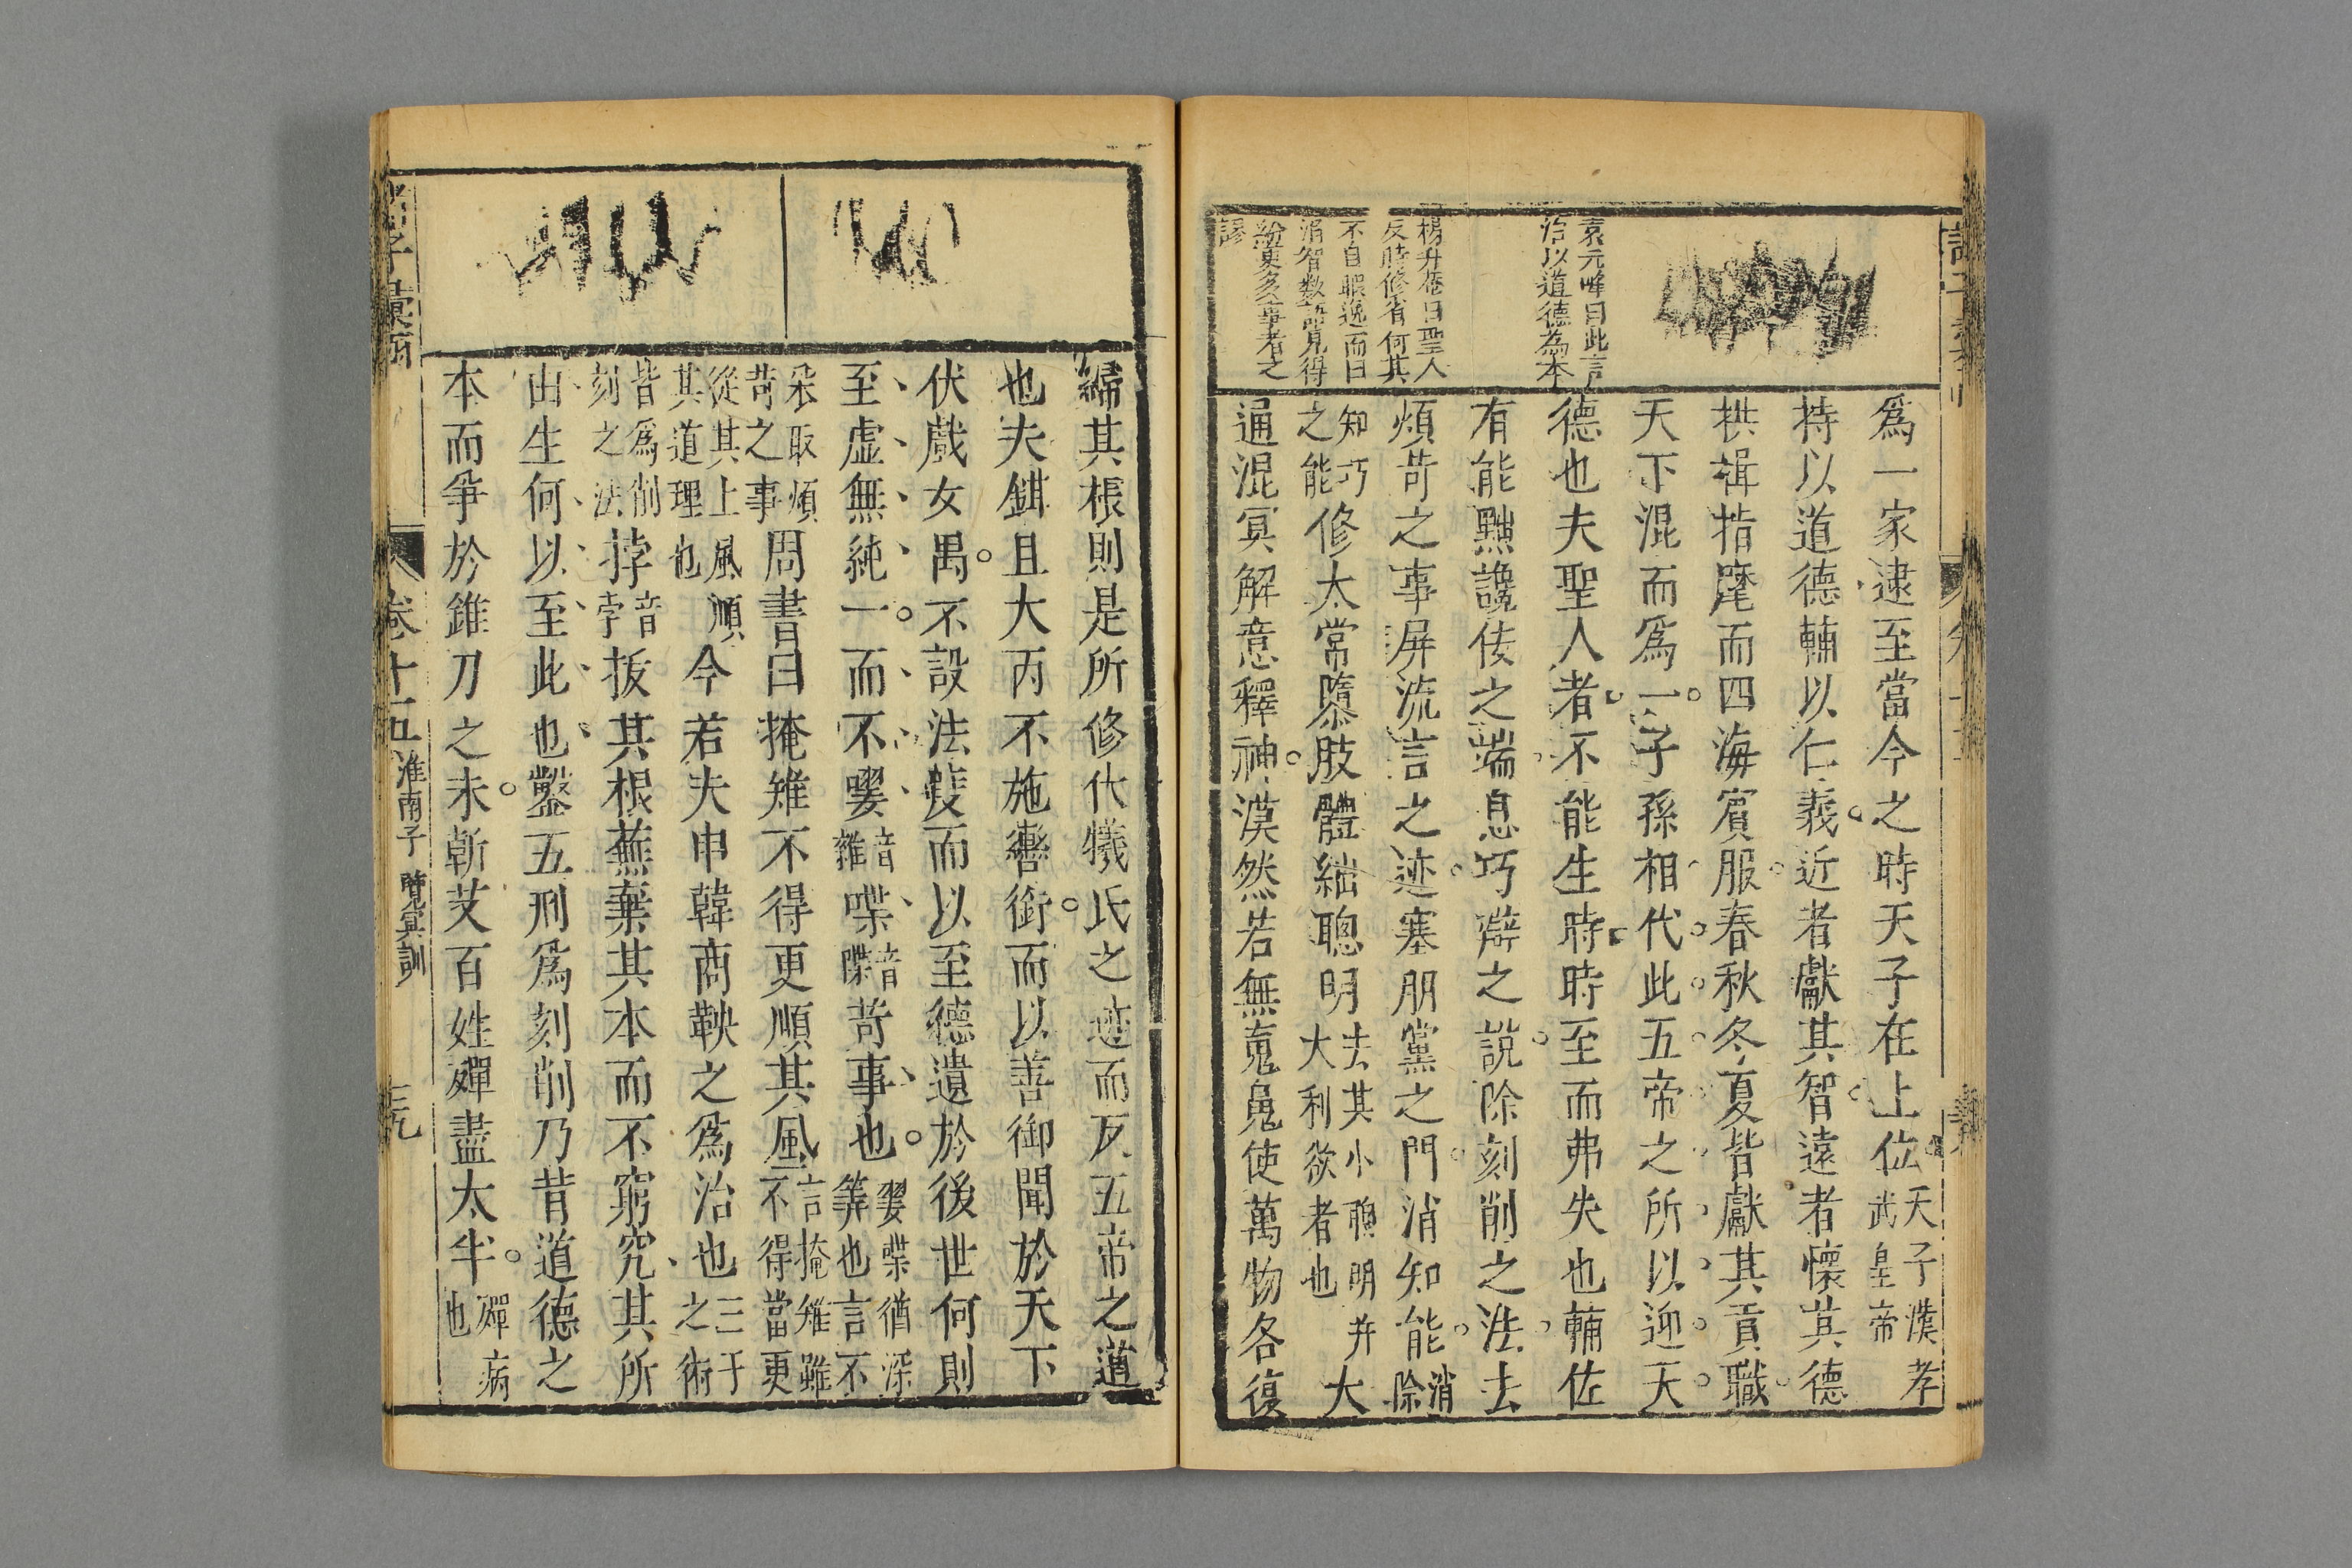 袁元峰曰此言
治以道德為本
楊升菴曰聖人
反時修省何其
不自暇逸而曰
消智數語見得
紛更多事者之
謬
爲一家逮至當今之時天子在上位天子漢孝
武皇帝
持以道德輔以仁義近者獻其智遠者懷其德
拱揖指麾而四海賔服春秋冬夏皆獻其貢職
天下混而爲一子孫相代此五帝之所以迎天
德也夫聖人者不能生時時至而弗失也輔佐
有能黜讒佞之端息巧辯之說除刻削之法去
煩苛之事屏流言之迹塞朋黨之門消知能消
除
知巧
之能修太常隳肢體絀聰明去其小聰明并
大利欲者也大
通混冥解意釋神漠然若無䰟魄使萬物各復
歸其根則是所修伏犧氏之迹而反五帝之道
也夫鉗且大丙不施轡銜而以善御聞於天下
伏戲女媧不設法度而以至德遺於後世何則
至虛無純一而不嘤音
雜喋音
牒苛事也嘤喋猶深
筭也言不
采取煩
苛之事周書曰掩雉不得更順其風言掩雉雖
不得當更
從其上風順
其道理也今若夫申韓商鞅之爲治也三于
之術
皆爲削
刻之法挬音
孛拔其根蕪棄其本而不窮究其所
由生何以至此也鑿五刑爲刻削乃背道德之
本而爭於錐刀之末斬艾百姓殫盡太半殫病
也
卷十五
淮南子
覽冥訓